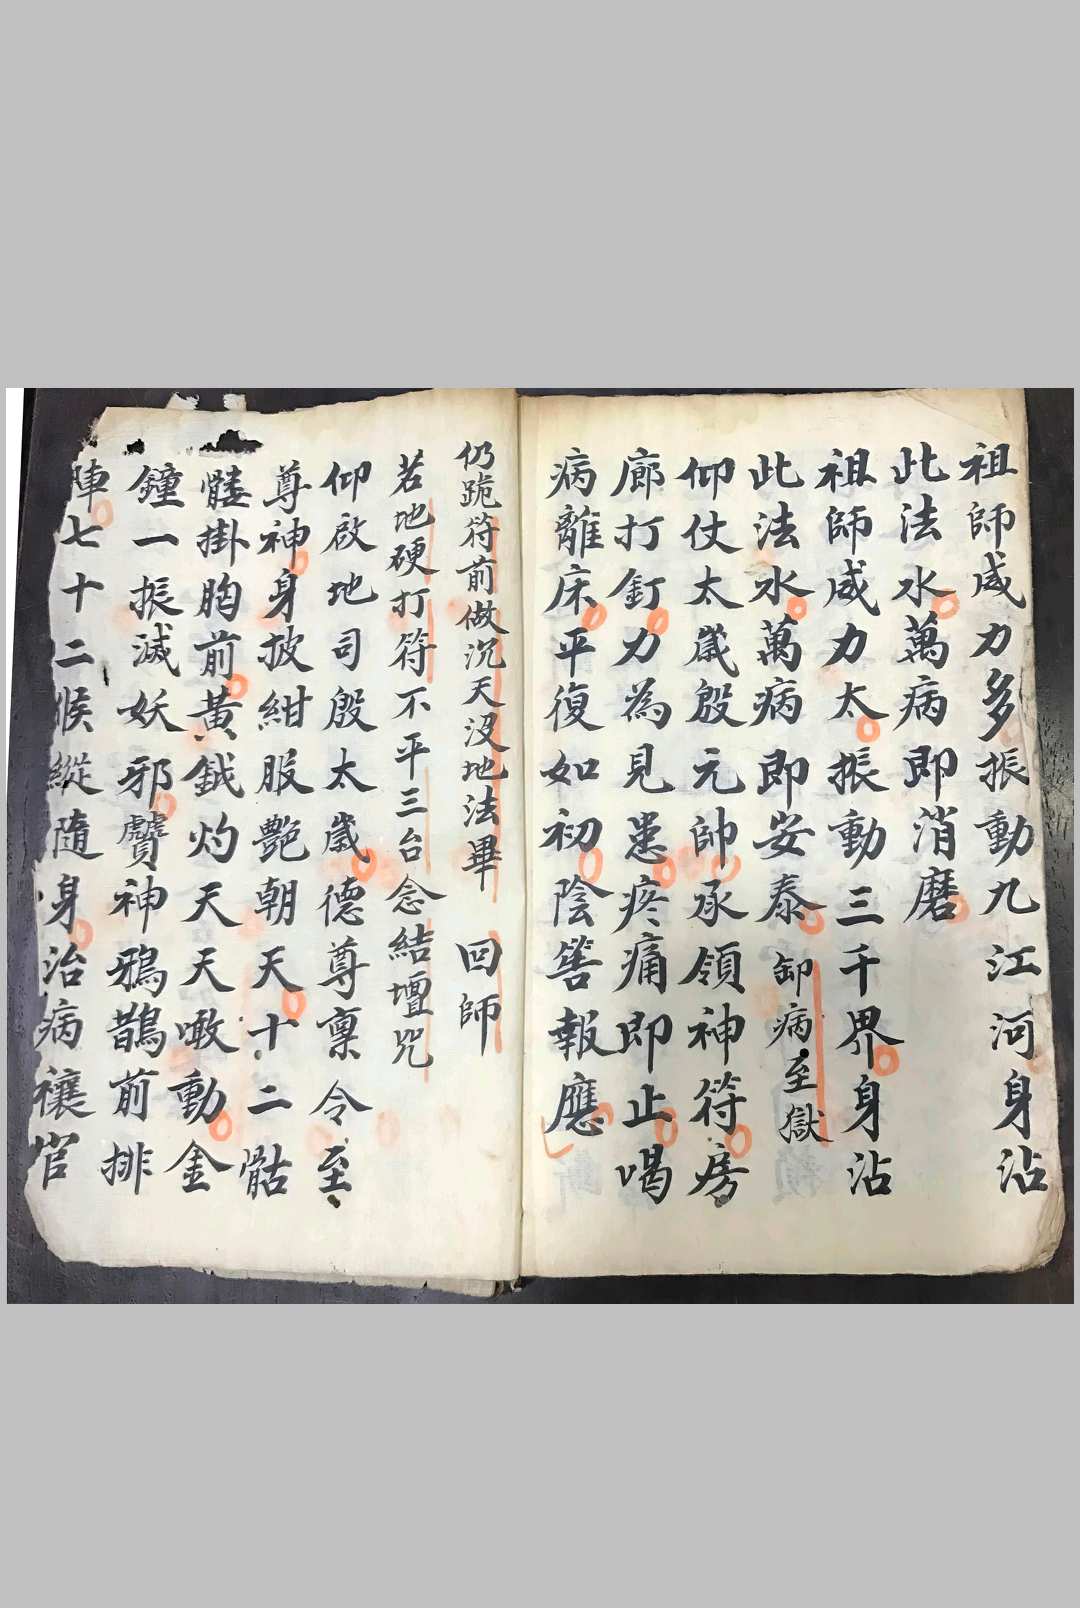 祖師威力多振動九江河身沾
此法水萬病即消磨
祖師威力太振動三千界身沾
此法水萬病即安泰 卸病至獄
仰仗太歲殷元帥承領神符房
廊打釘力為見患疼痛即止喝
病離床平復如初陰答報應
仍跪符前做沉天沒地法畢 回師
若地硬打符不平三台念結壇咒
仰啟地司殷太歲德尊稟令至
尊神身披紺服艷朝天十二骷
髏掛胸前黃鉞灼天天暾動金
鐘一振滅妖邪 神鴉鵲前排
陣七十二候縱隨身治病禳官